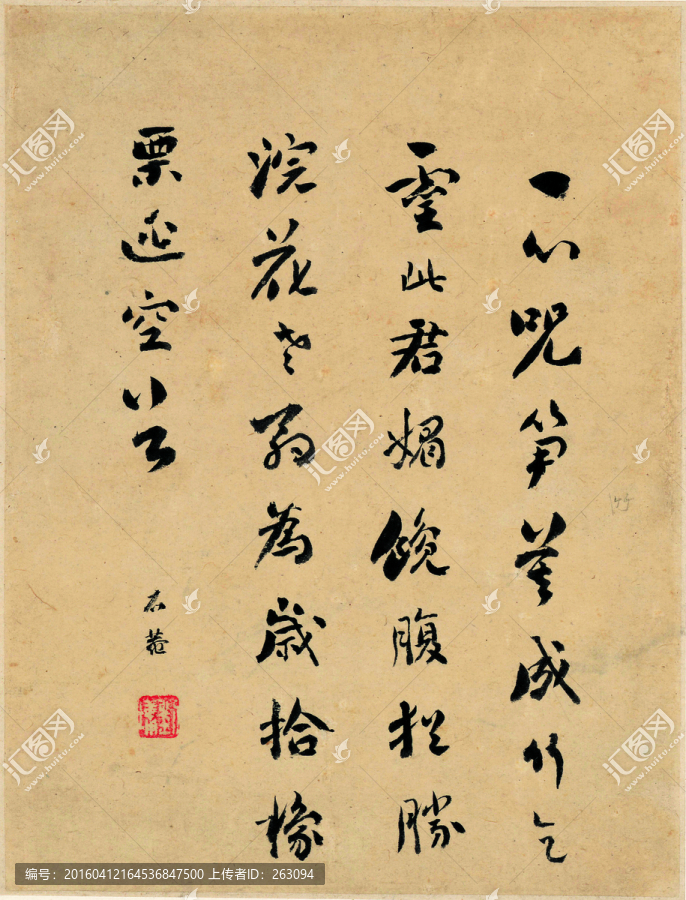 一心咒筍莫成竹乞
靈此君媚饞腹猶勝
浣花老翁為歲拾橡
栗逃空谷
石菴
汇图网
www.huitu.com
编号：20160412164536847500 上传者ID：263094